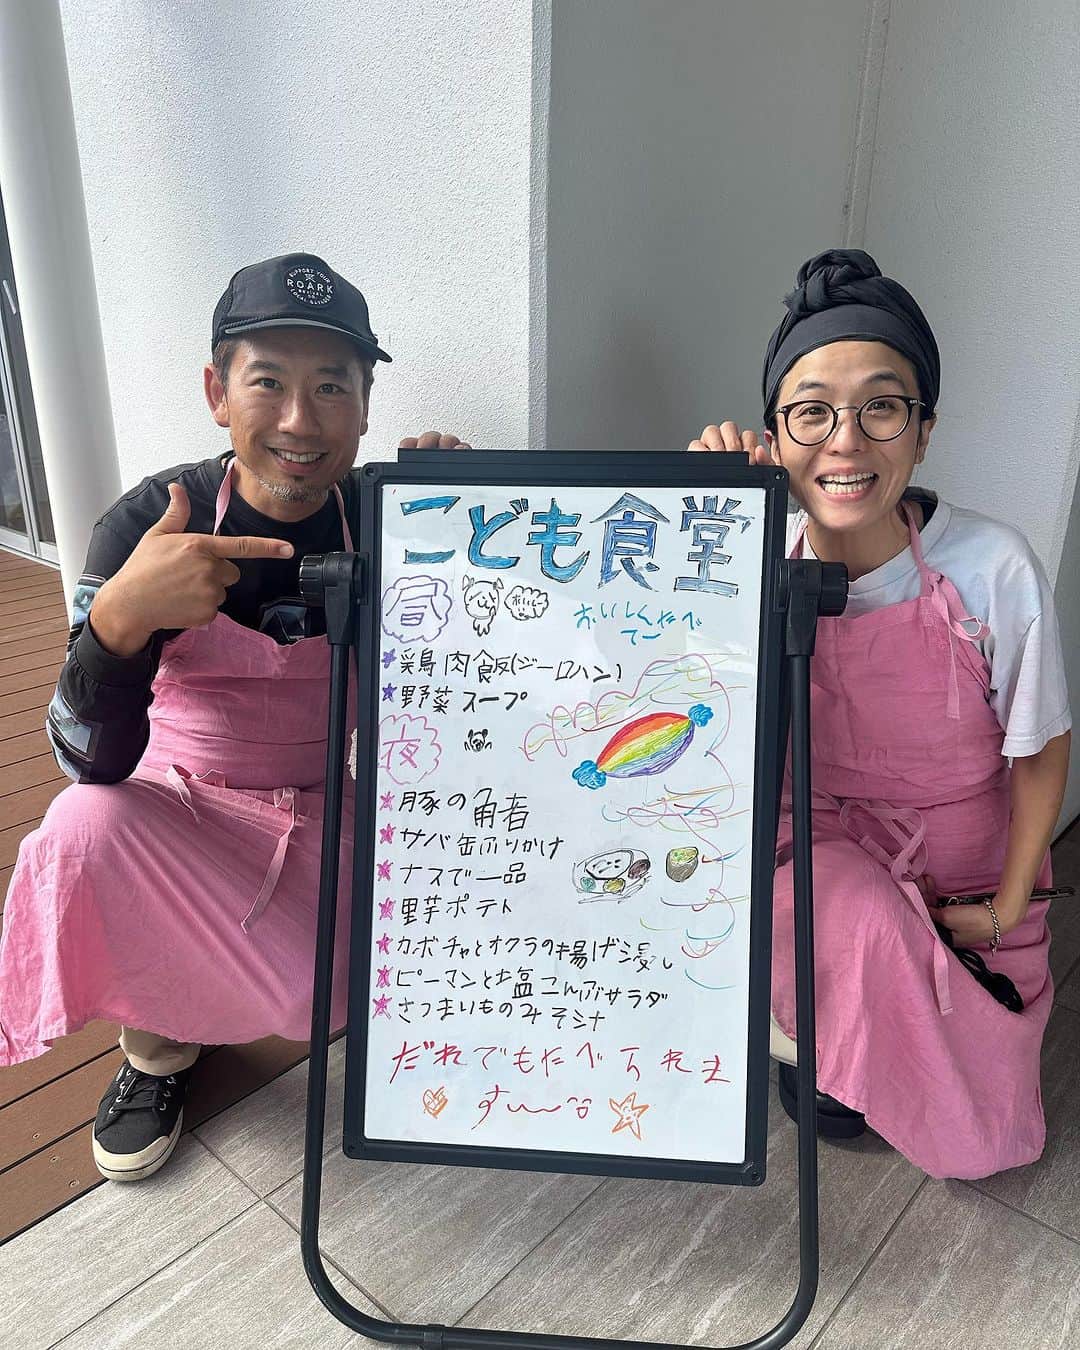 SUPPORT YOUR
ROARK
REVIVAL
CO.
こども食堂
昼
おいしー
おいしくたべ
てー
鶏肉飯(ジーロハン)
野菜スープ
夜
豚の角煮
サバ缶ぶりかけ
ナスで一品
里芋ポテト
カボチャとオクラの揚げ浸し
ピーマンと塩こんぶサラダ
さつまいものみそシナ
だれでもたべられま
すー